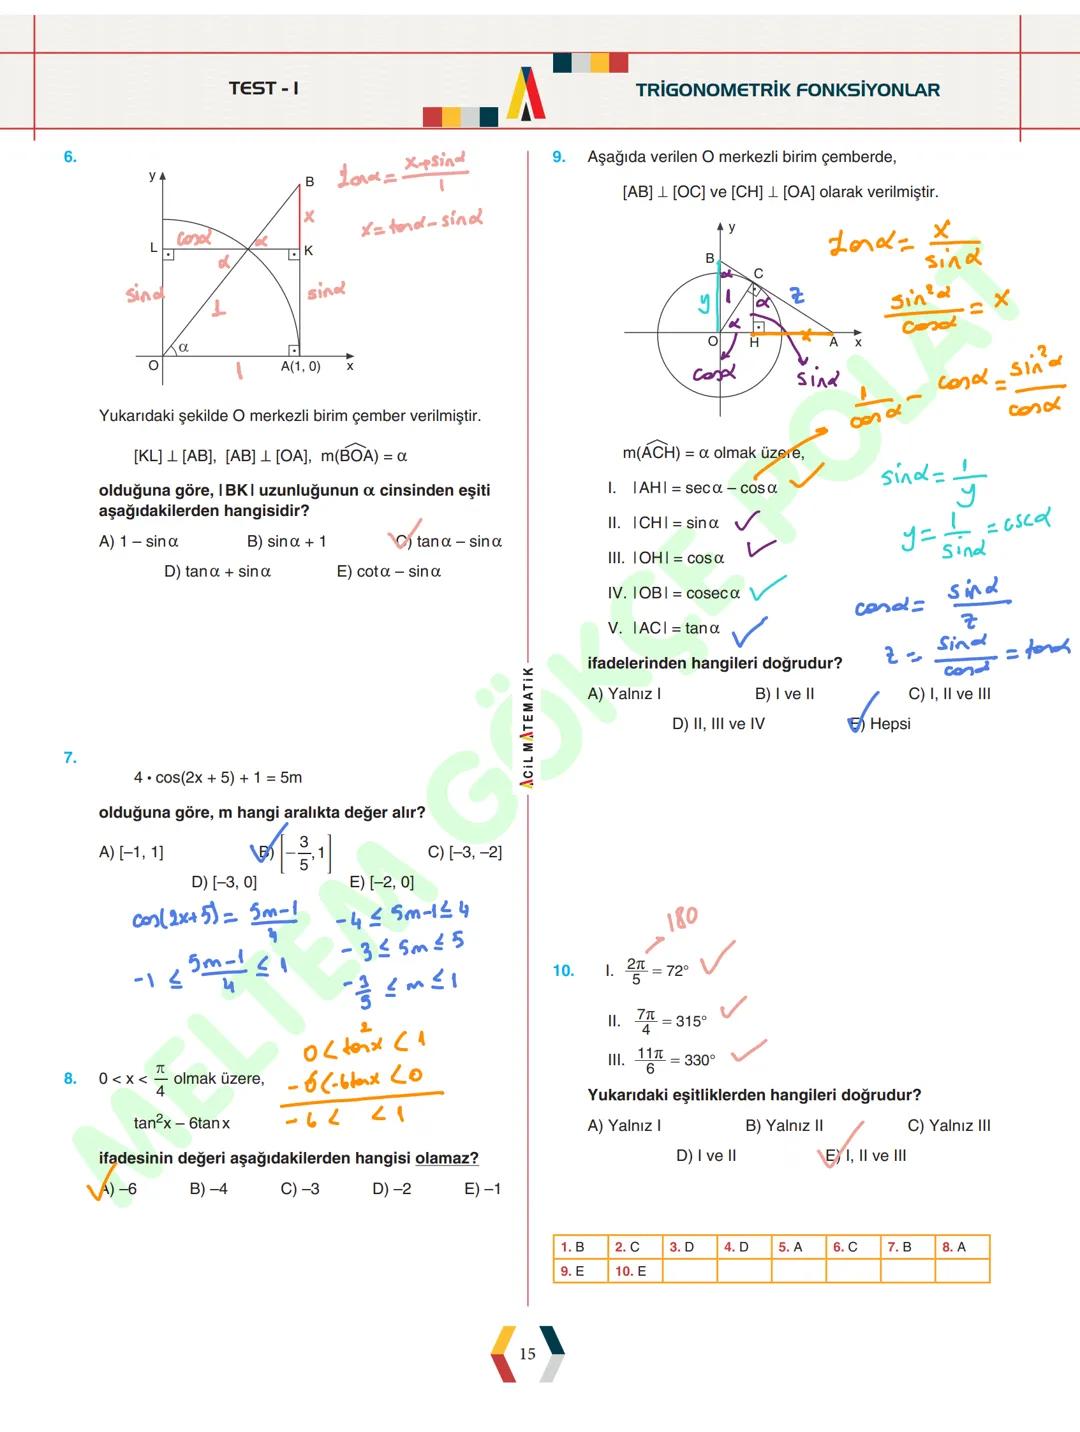 TEST - I
TRİGONOMETRİK FONKSİYONLAR
6.
y
B
L
K
cosα
α
α
x
sinα
sinα
1
α
O
1
A(1, 0)
x
tanα = x+sinα / 1
x = tanα - sinα
Yukarıdaki şekilde O merkezli birim çember verilmiştir.
[KL] ⊥ [AB], [AB] ⊥ [OA], m(BOA) = α
olduğuna göre, |BK| uzunluğunun α cinsinden eşiti
aşağıdakilerden hangisidir?
A) 1 – sinα B) sinα + 1 C) tanα – sinα
D) tanα + sinα E) cotα – sinα
7.
4 • cos(2x + 5) + 1 = 5m
olduğuna göre, m hangi aralıkta değer alır?
A) [–1, 1] B) [–3/5, 1] C) [–3, –2]
D) [–3, 0] E) [–2, 0]
cos(2x+5) = 5m-1 / 4
-1 ≤ 5m-1 / 4 ≤ 1
-4 ≤ 5m-1 ≤ 4
-3 ≤ 5m ≤ 5
-3/5 ≤ m ≤ 1
8. 0 < x < π/4 olmak üzere,
tan²x – 6tanx
0 < tan²x < 1
-6 < -6tanx < 0
-6 < < 1
ifadesinin değeri aşağıdakilerden hangisi olamaz?
A) –6 B) –4 C) –3 D) –2 E) –1
ACİL MATEMATİK
9. Aşağıda verilen O merkezli birim çemberde,
[AB] ⊥ [OC] ve [CH] ⊥ [OA] olarak verilmiştir.
y
B
C
α
y
1
α
z
α
O
H
x
A
x
cosα
sinα
tanα = x / sinα
sin²α / cosα = x
1 / cosα - cosα = sin²α / cosα
m(ACH) = α olmak üzere,
I. |AH| = secα – cosα
II. |CH| = sinα
III. |OH| = cosα
IV. |OB| = cosecα
V. |AC| = tanα
sinα = 1 / y
y = 1 / sinα = cscα
cosα = sinα / z
z = sinα / cosα = tanα
ifadelerinden hangileri doğrudur?
A) Yalnız I B) I ve II C) I, II ve III
D) II, III ve IV E) Hepsi
180
10. I. 2π/5 = 72°
II. 7π/4 = 315°
III. 11π/6 = 330°
Yukarıdaki eşitliklerden hangileri doğrudur?
A) Yalnız I B) Yalnız II C) Yalnız III
D) I ve II E) I, II ve III
1. B 2. C 3. D 4. D 5. A 6. C 7. B 8. A
9. E 10. E
15
MELTEM GÖKÇE POLAT